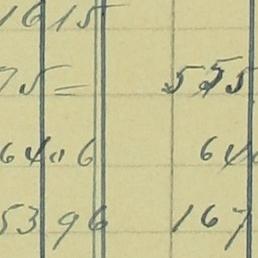 1615
75 = 555
6406 640
5396 167